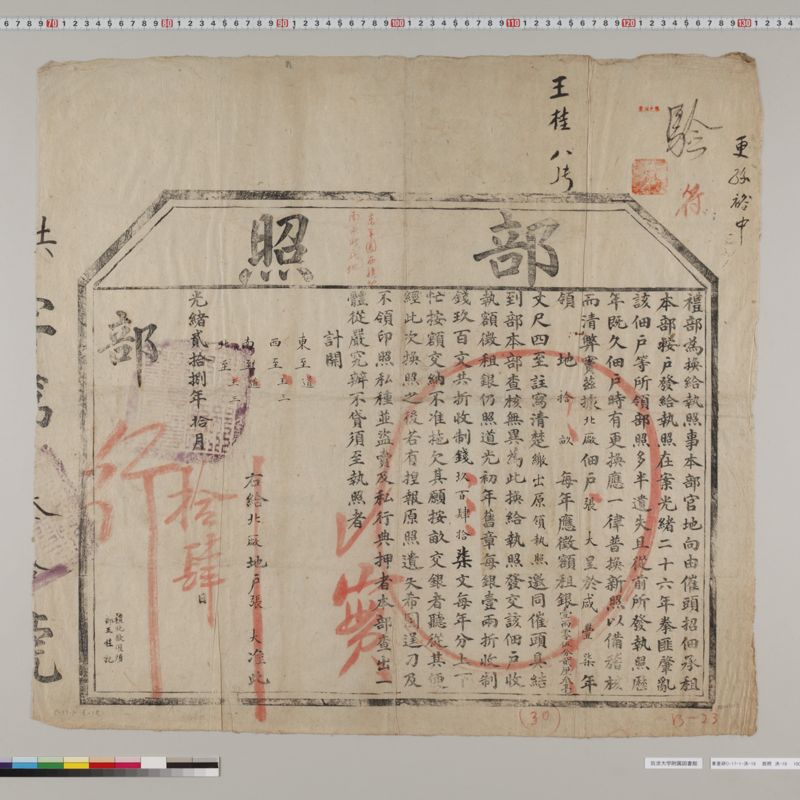 部照
禮部為換給執照事本部官地向由催頭招佃承租
本部按戶發給執照在案光緒二十六年拳匪肇亂
該佃戶等所領部照多半遺失且從前所發執照歷
年既久佃戶時有更換應一律普換新照以備稽核
而清弊竇茲據北廠佃戶張大呈於咸豐柒年
領地拾畝每年應徵額租銀
丈尺四至註寫清楚繳出原領執照邀同催頭具結
到部本部查核無異為此換給執照發交該佃戶收
執額徵租銀仍照道光初年舊章每銀壹兩折收制
錢玖百文共折收制錢玖百肆拾柒文每年分上下
忙按額交納不准拖欠其願按畝交銀者聽從其便
經此次換照之後若有捏報原照遺失希圖逞刀及
不領印照私種並盜賣及私行典押者本部查出一
體從嚴究辦不貸須至執照者
計開
東至道
西至王二
南至道
北至王三
右給北廠地戶張大准此
光緒貳拾捌年拾月拾肆日
部
行
王桂
八號
驗
符
更孫裕中
(30)
13-23
筑波大学附属図書館